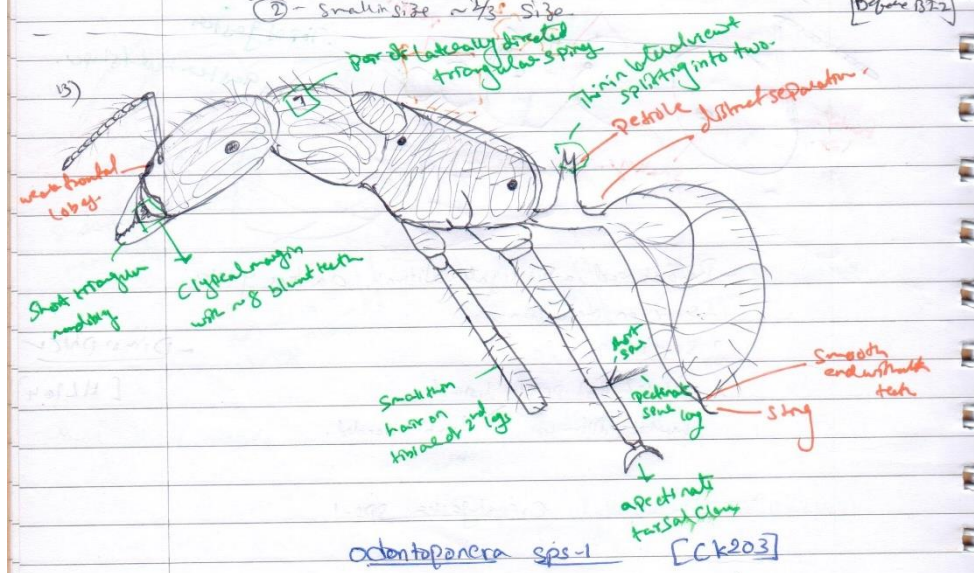 ② - small in size ~ 2/3 size
13)
Pair of laterally directed
triangular spine
Thin in lateral view
splitting into two.
petiole
distinct separation.
weak frontal
lobes
Short triangular
Clypeal margin
with ~8 blunt teeth
Small thin
hair on
tibiae of 2nd legs
short
pectinate
apectinate
tarsal claws
Smooth
end without
teeth
sting
odontoponera sps-1 [CK203]